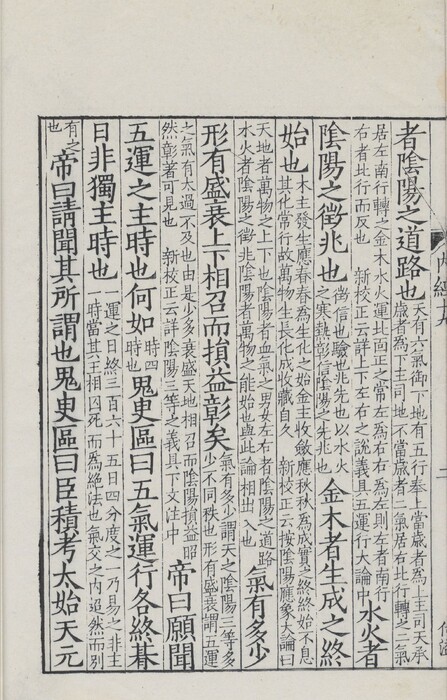 者陰陽之道路也天有六氣御下地有五行奉上當歲者為上主司天承歲者為下主司地不當歲者二氣居右北行轉之二氣
居左南行轉之金木水火運北面正之常左為右右為左則左者南行右者北行而反也 新校正云詳上下左右之說義具五運行大論中水火者
陰陽之徵兆也徵信也驗也兆先也以水火之寒熱彰信陰陽之先兆也金木者生成之終
始也木主發生應春春為生化之始金主收斂應秋秋為成實之終終始不息其化常行故萬物生長化成收藏自久 新校正云按陰陽應象大論曰
天地者萬物之上下也陰陽者血氣之男女左右者陰陽之道路水火者陰陽之徵兆陰陽者萬物之能始也與此論相出入也氣有多少
形有盛衰上下相召而損益彰矣氣有多少謂天之陰陽三等多少不同秩也形有盛衰謂五運
之氣有太過不及也由是少多衰盛天地相召而陰陽損益昭然彰著可見也 新校正云詳陰陽三等之義具下文注中帝曰願聞
五運之主時也何如時四時也鬼臾區曰五氣運行各終朞
日非獨主時也一運之日終三百六十五日四分度之一乃易之非主時當其王相囚死而為絕法也氣交之內迢然而別
有之也帝曰請聞其所謂也鬼臾區曰臣積考太始天元